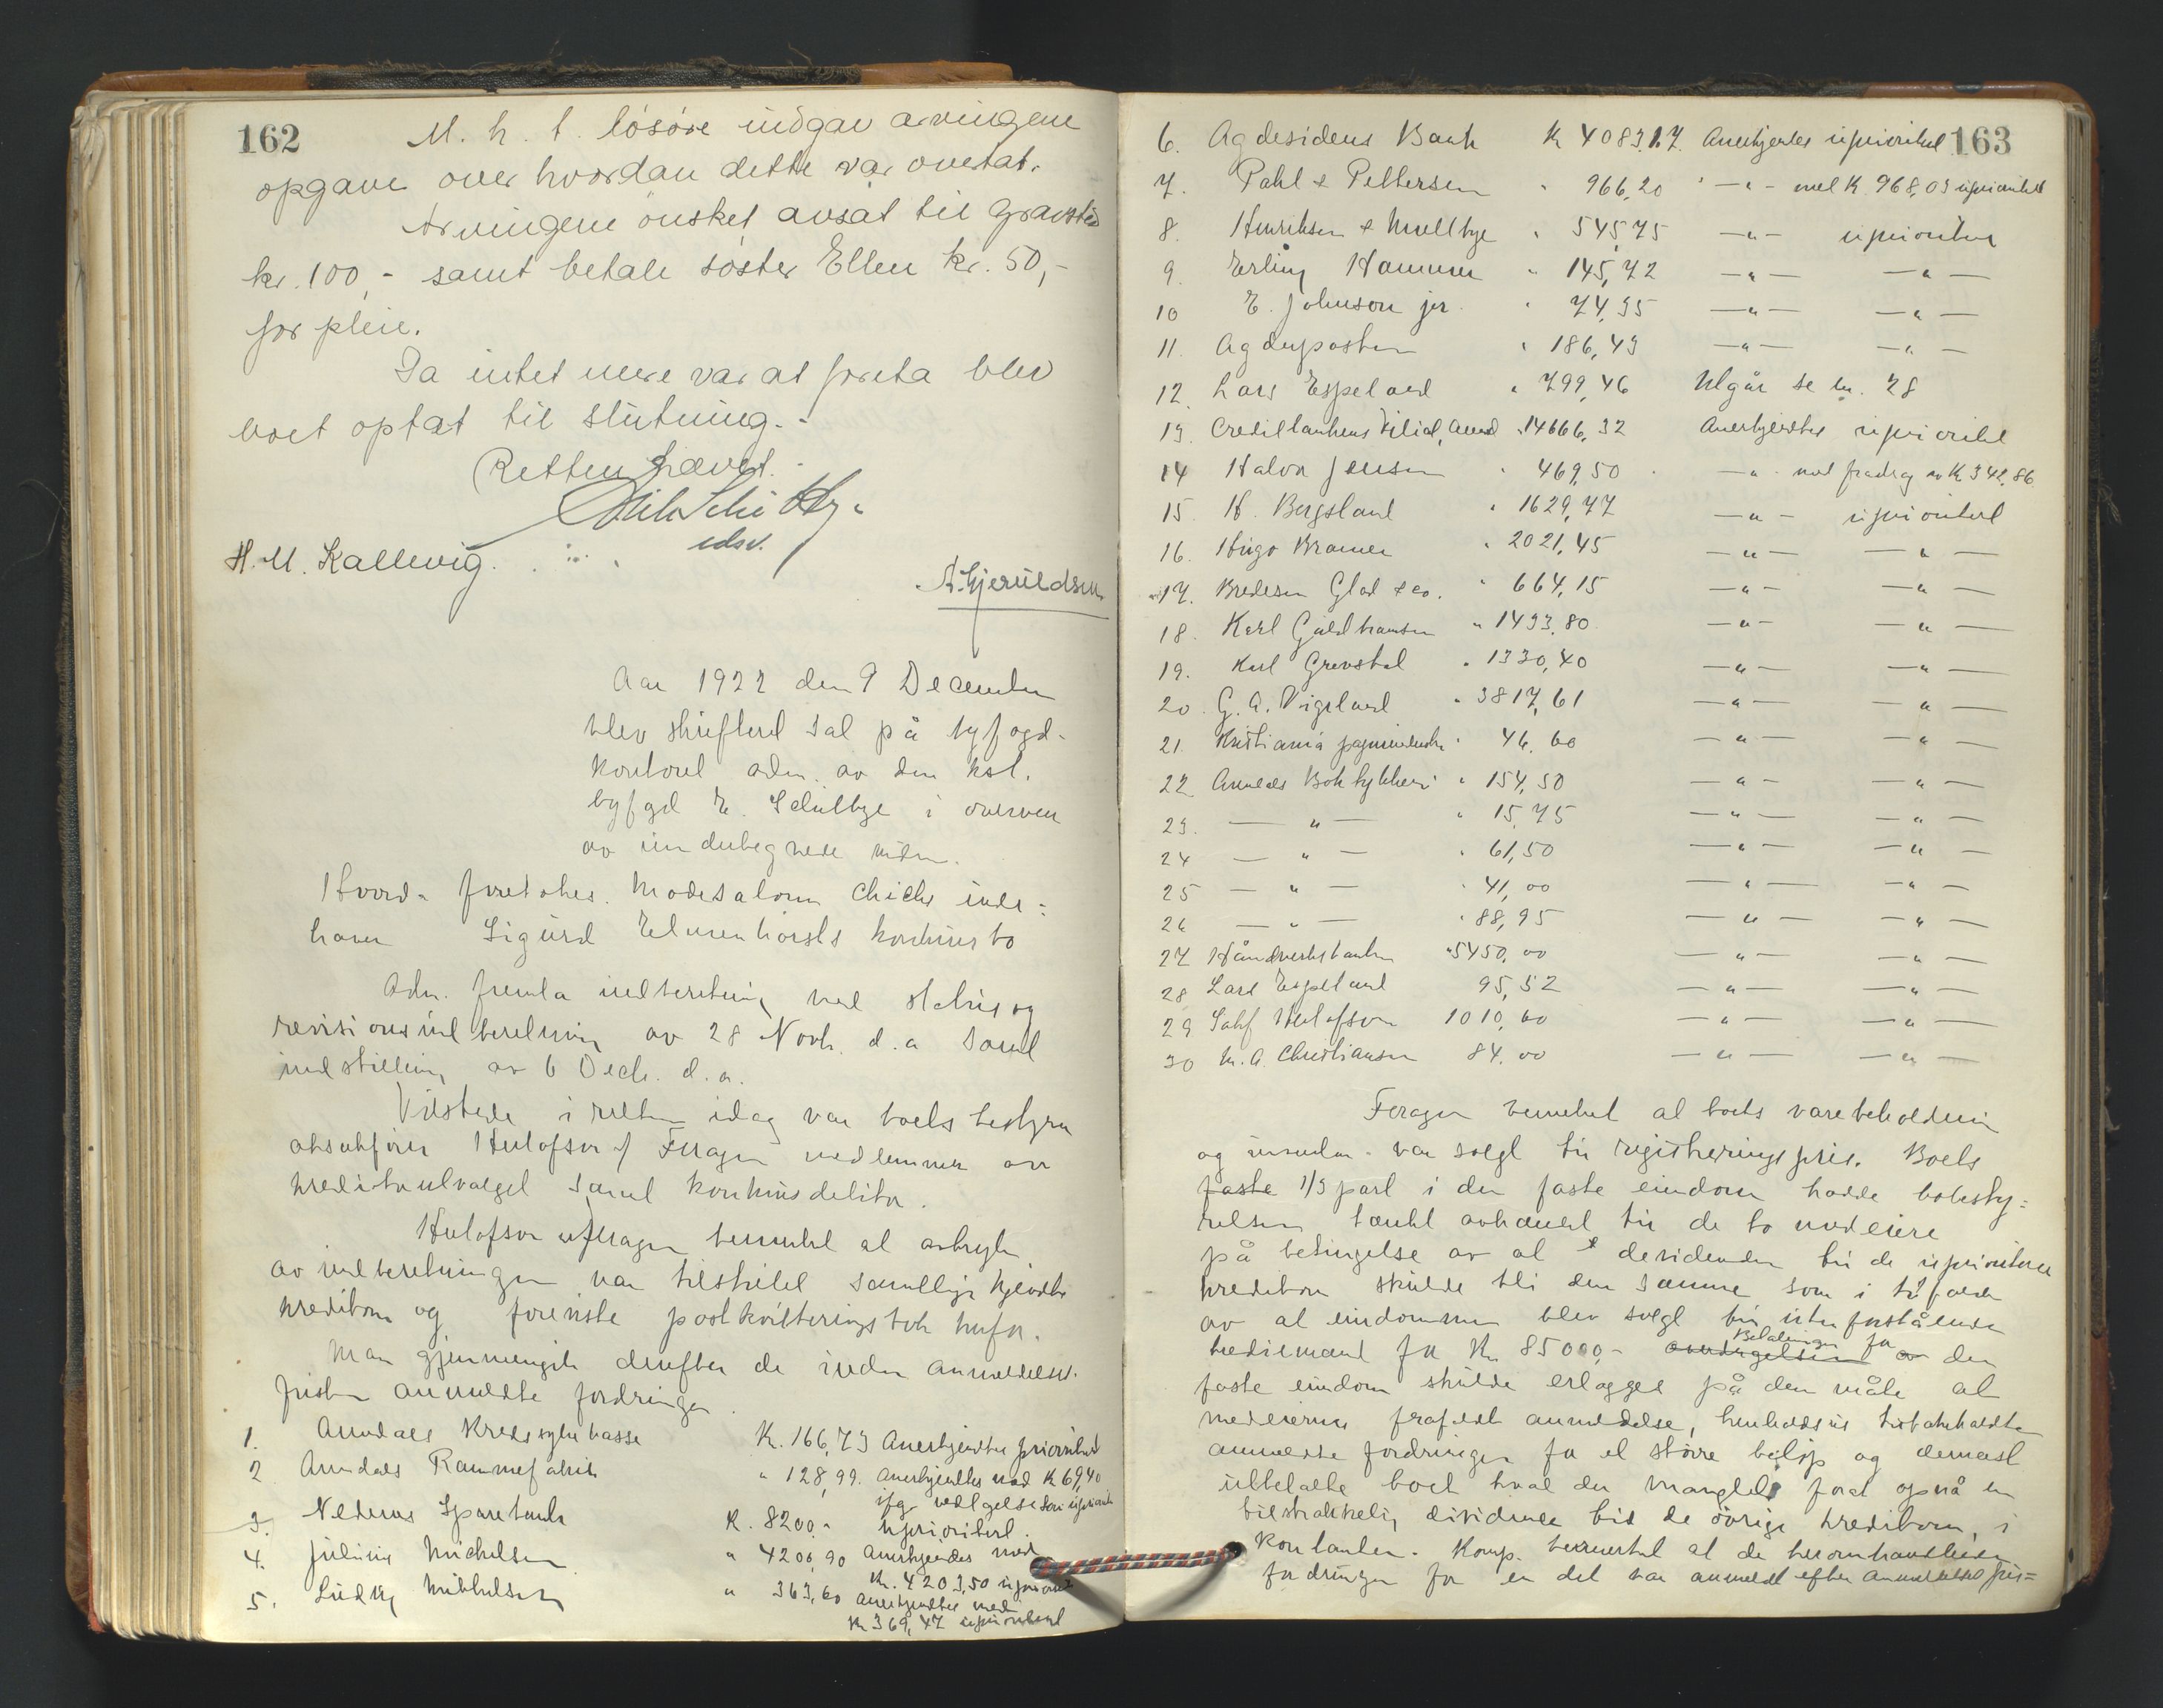 162
M. h. t. løsøre indgav arvingene
opgave over hvordan dette var overtat.
Arvingene ønsket avsat til gravsted
kr. 100,- samt betale søster Ellen kr. 50,-
for pleie.
Da intet mere var at foreta blev
boet optat til slutning. -
Retten hævet.
edsv.
H. M. Kallevig.
A. Gjeruldsen
Aar 1922 den 9 December
blev skifteret sat på byfogd-
kontoret adm. av den kst.
byfogd E. Schibbye i overvær
av undertegnede vidner.
Hvorda foretokes Modesalonen Chichs inde-
haver Sigurd Elmenhorsts konkursbo
Adm. fremla indberetning med status og
revisionsindberetning av 28 Novbr. d.a. samt
indstilling av 6 Decbr. d.a.
Tilstede i retten idag var boets bestyrer
oksakfører Herlofson f/ Feragen medlemmer av
kreditorutvalget samt konkursdebitor.
Herlofson f/ Feragen bemerket at avtryk
av indberetningen var tilstillet samtlige kjendte
kreditorer og foreviste postkvitteringsbok herfor.
Man gjennemgik derefter de inden anmeldelses-
fristen anmeldte fordringer
1. Arendals Kredssykekasse K. 166,73 Anerkjendtes prioritert
2 Arendals Rammefabrik " 128,99. Anerkjendtes med K 69,40
ifg. vedtagelse som uprioritert
3. Nedenes Sparebank K. 8200.- uprioritert.
4. Julius Michelsen " 4206,90 Anerkjendes med
Kr. 4203,50 uprioritert
5. Ludvig Mikkelsen " 363,60 Anerkjendtes med
Kr 369,47 uprioritert
163
6. Agdesidens Bank K 4083.17. Anerkjendes uprioritert
7. Pahl & Pettersen " 966,20 " — " - med K. 968,03 uprioritert
8. Henriksen & Mullbye " 545,75 — " — uprioritert
9. Erling Hammer " 145,72 — " — — " —
10 E. Johnson jr. " 74,35 — " — — " —
11. Agderposten " 186,49 — " — — " —
12. Lars Espeland " 799,46 Utgår se nr. 28
13. Creditbankens Filial, Arend " 14666,32 Anerkjendtes uprioritert
14 Halvor Jensen " 469,50 — " - med fradrag av K 342,86
15. H. Bergsland " 1629,47 — " — uprioritert
16. Hugo Bramer " 2021,45 — " — — " —
17. Bredesen Glad & co. " 664,15 — " — — " —
18. Karl Guldbransen " 1493.80 — " — — " —
19. Karl Grevstad " 1330,40 — " — — " —
20. G. A. Vigeland " 3817,61 — " — — " —
21. Kristiania papirindustri " 46,60 — " — — " —
22 Arendals Boktykkeri " 154,50 — " — — " —
23. — " — " 15,75 — " — — " —
24 — " — " 61,50 — " — — " —
25 — " — " 41,00 — " — — " —
26 — " — " 88,95 — " — — " —
27 Håndverksbanken " 5450,00 — " — — " —
28 Lars Espeland 95,52 — " — — " —
29 Sakf Herlofson 1010,60 — " — — " —
30 M. A. Christiansen 84.00 — " — — " —
Feragen bemerket at boets varebeholdning
og inventar var solgt til registreringspris. Boets
faste 1/3 part i den faste eiendom hadde bobesty-
relsen tænkt avhændet til de to medeiere
på betingelse av at devidenden til de uprioriterte
kreditorer skulde bli den samme som i tilfælde
av at eiendommen blev solgt til utenforstående
trediemand for Kr. 85000,- Betalingen for den
faste eiendom skulde erlægges på den måte at
medeierne frafaldt anmeldelse, henholdsvis tilbakeholdte
anmeldte fordringer for et større beløp og dernæst
utbetalte boet hvad der manglet for at opnå en
tilstrækkelig dividende til de øvrige kreditorer, i
kontanter. Komp. bemerket at de heromhandlede
fordringer for en del var anmeldt efter anmeldelsesfris-